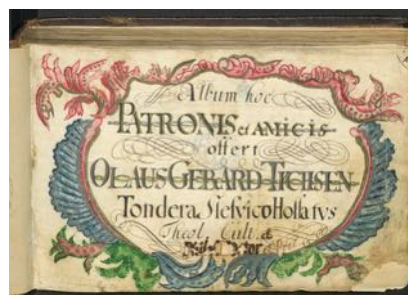 Album hoc
PATRONIS et AMICIS
offert
OLAUS GERARD TICHSEN
Tondera Slesvico Holsatus
Theol. Cult. &